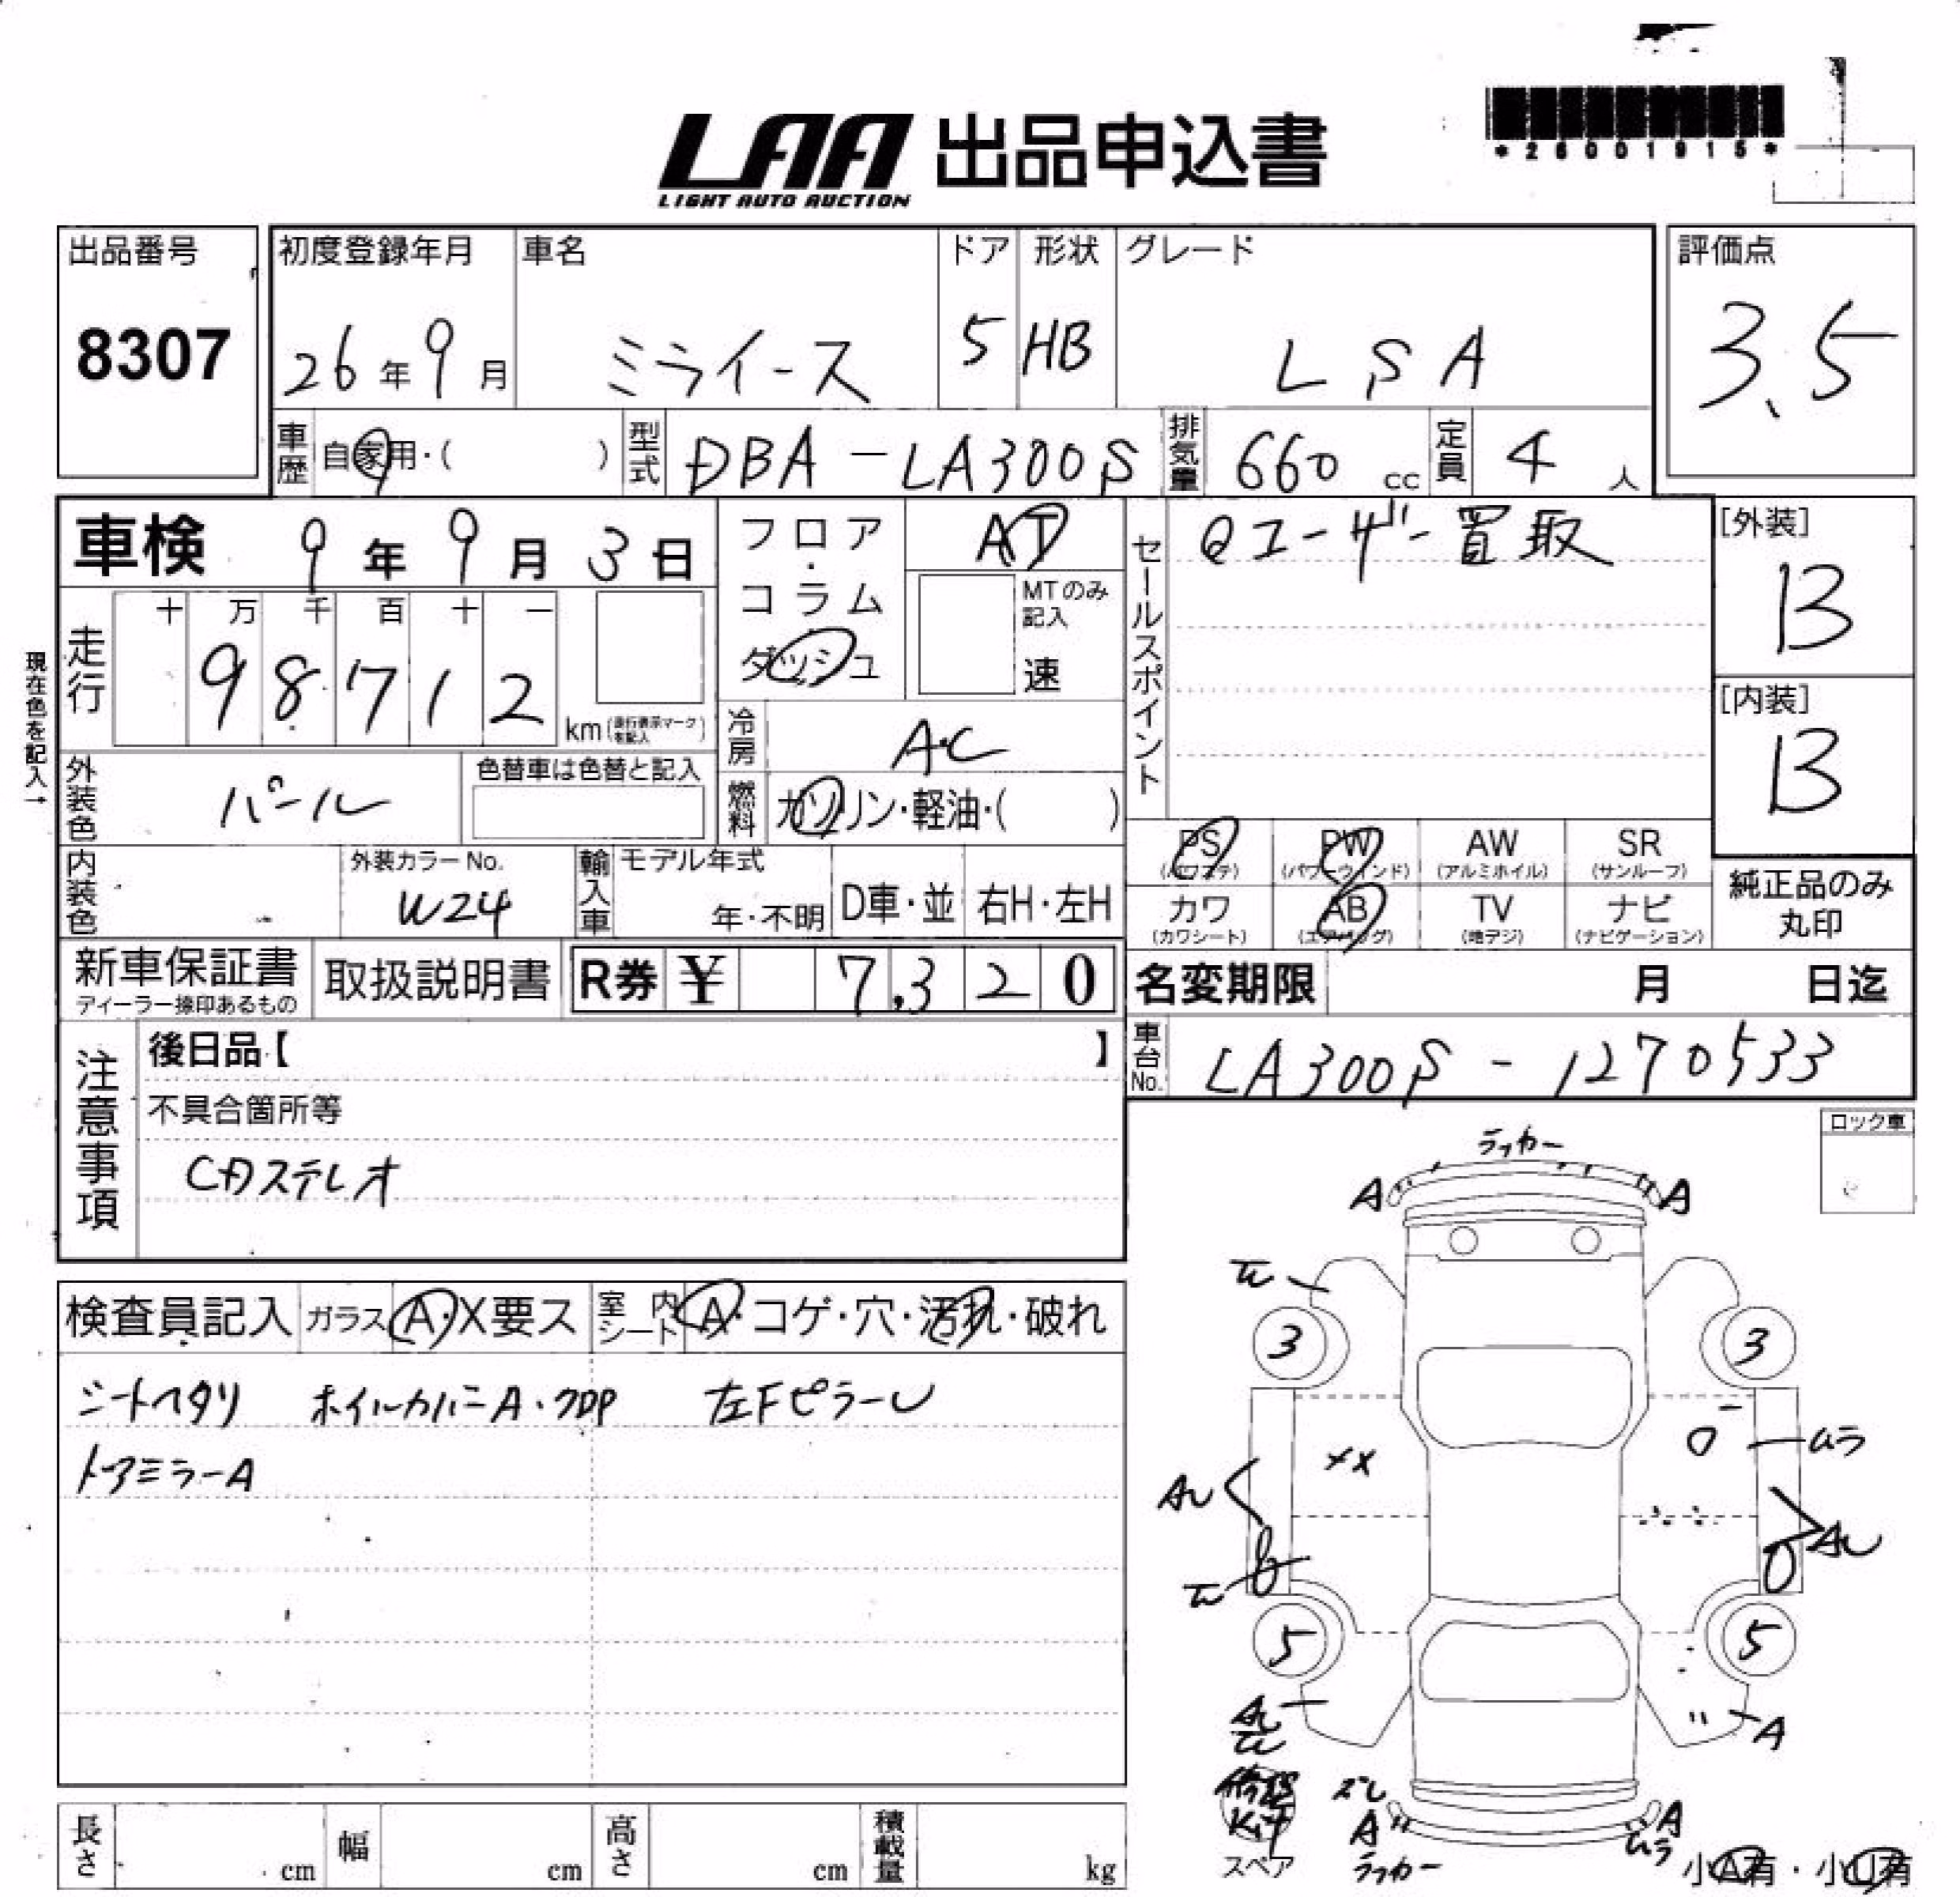 LAA 出品申込書
LIGHT AUTO AUCTION
*26001915*
出品番号
8307
初度登録年月
26年9月
車名
ミライース
ドア
5
形状
HB
グレード
LSA
評価点
3.5
車歴 自家用・( )
型式 DBA-LA300S
排気量 660 cc
定員 4 人
車検 9年9月3日
現在色を記入→
走行
十 万 千 百 十 一
98712
km(走行表示マークを記入)
フロア・コラム
ダッシュ
AT
MTのみ記入
速
冷房 AC
燃料 ガソリン・軽油・( )
外装色 パール
色替車は色替と記入
内装色
外装カラーNo.
W24
輸入車
モデル年式
年・不明
D車・並
右H・左H
セールスポイント
Qユーザー買取
[外装]
B
[内装]
B
PS
(パワステ)
PW
(パワーウィンド)
AW
(アルミホイル)
SR
(サンルーフ)
カワ
(カワシート)
AB
(エアバッグ)
TV
(地デジ)
ナビ
(ナビゲーション)
純正品のみ
丸印
新車保証書
ディーラー捺印あるもの
取扱説明書
R券 ¥ 7,320
名変期限 月 日迄
車台No. LA300S-1270533
注意事項
後日品【 】
不具合箇所等
CDステレオ
ロック車
検査員記入
ガラス A・X要ス
室内シート A・コゲ・穴・汚れ・破れ
シートヘタリ ホイルカバーA 左FピラーU
ドアミラーA
ラッカー
A A
3 3
ムラ
AU
AU
5 5
AU
A
ズレ
A
ラッカー
A
ムラ
修理
Kit
スペア
小A有・小U有
長さ cm
幅 cm
高さ cm
積載量 kg